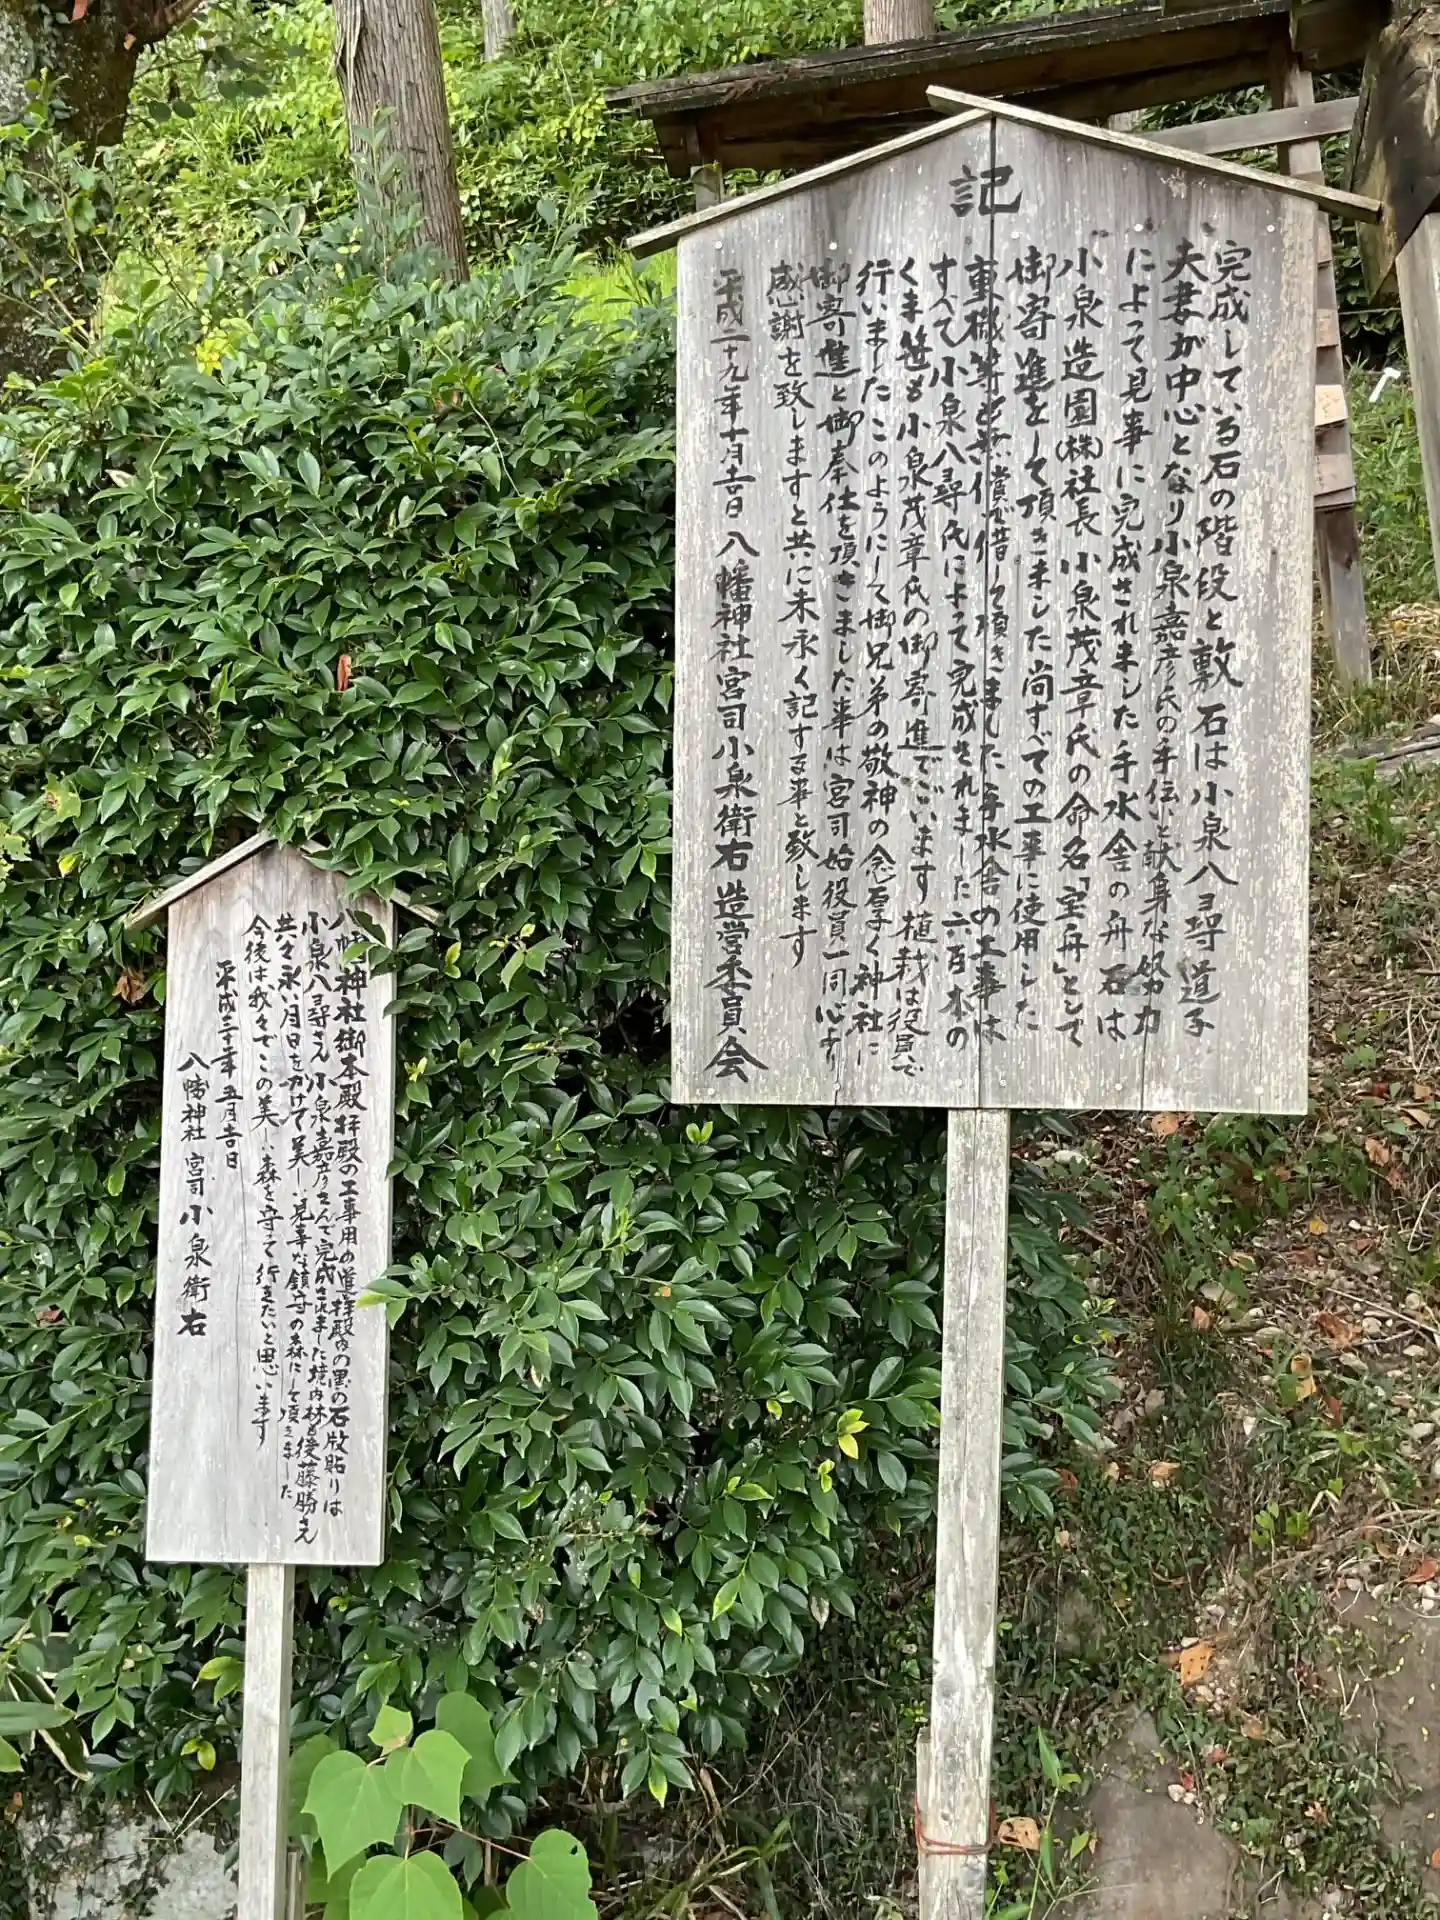 記
完成している石の階段と敷石は小泉八尋道子
夫妻が中心となり小泉嘉彦氏の手伝いと献身な努力
によって見事に完成されました手水舎の舟石は
小泉造園(株)社長小泉茂章氏の命名「宝舟」として
御寄進をして頂きました尚すべての工事に使用した
重機等も無償で借して頂きました手水舎の工事は
すべて小泉八尋氏によって完成されました六百本の
くま笹も小泉茂章氏の御寄進でございます植栽は役員で
行いましたこのようにして御兄弟の敬神の念厚く神社に
御寄進と御奉仕を頂きました事は宮司始役員一同心より
感謝を致しますと共に末永く記する事と致します
平成二十九年十月吉日 八幡神社宮司小泉衛右 造営委員会
八幡神社御本殿拝殿の工事用の道拝殿内の黒の石版貼りは
小泉八尋さん 小泉嘉彦さんで完成されました境内林も後藤勝さん
共々永い月日をかけて美しい見事な鎮守の森にして頂きました
今後は我々でこの美しい森を守って行きたいと思います
平成三十年五月吉日
八幡神社 宮司 小泉衛右